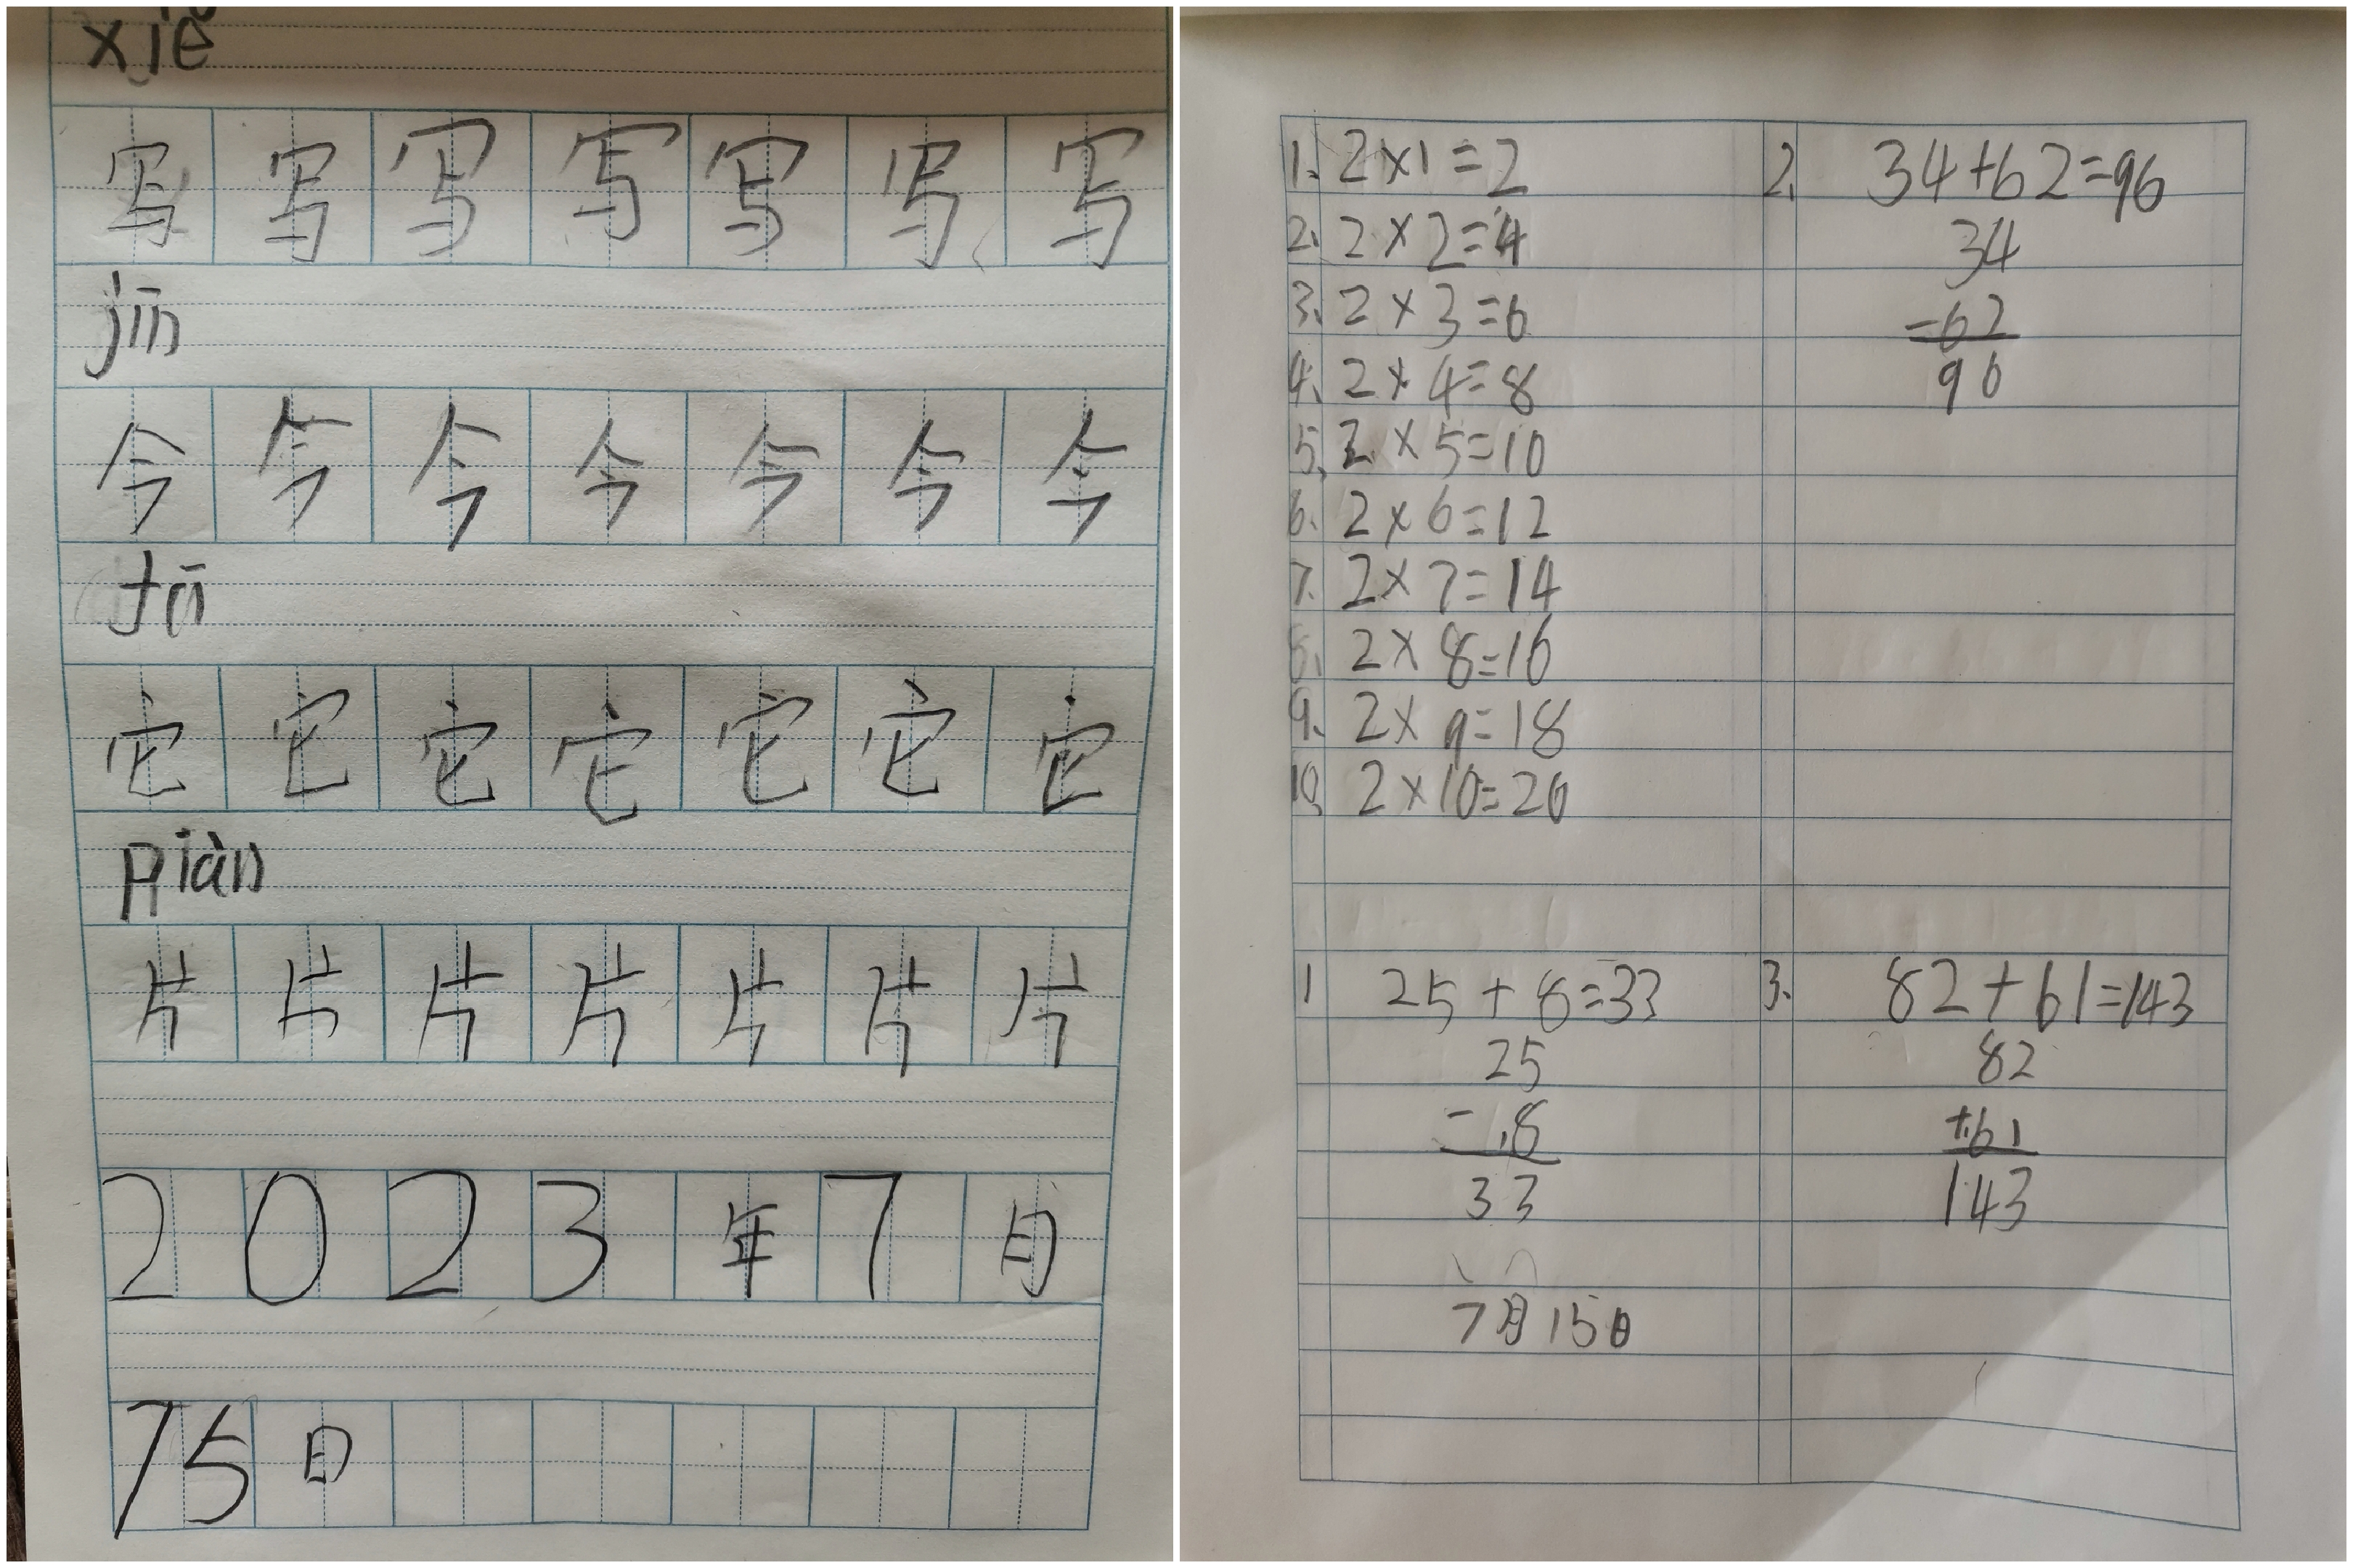 xiě
写写写写写写写
jīn
今今今今今今今
tā
它它它它它它它
piàn
片片片片片片片
2023年7月
15日
1. 2×1=2
2. 2×2=4
3. 2×3=6
4. 2×4=8
5. 2×5=10
6. 2×6=12
7. 2×7=14
8. 2×8=16
9. 2×9=18
10. 2×10=20
1 25+8=33
25
-8
33
7月15日
2. 34+62=96
34
-62
96
3. 82+61=143
82
+61
143